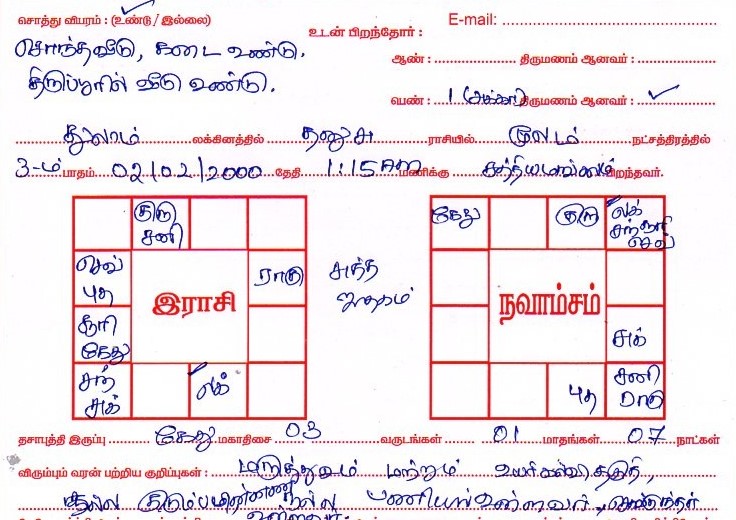 சொத்து விபரம் : (உண்டு / இல்லை)
E-mail:
உடன் பிறந்தோர் :
சொந்தவீடு, கடை உண்டு.
ஆண் : திருமணம் ஆனவர் :
திருப்பூரில் வீடு உண்டு.
பெண் : 1 (அக்கா) திருமணம் ஆனவர் : ✓
துலாம் லக்கினத்தில் தனுசு ராசியில் மூலம் நட்சத்திரத்தில்
3-ம் பாதம் 02/02/2000 தேதி 1:15 AM மணிக்கு சத்தியமங்கலம் பிறந்தவர்.
குரு சனி
கேது குரு லக் செவ்
செவ் புத ராகு
சுத்த ஜாதகம்
இராசி
நவாம்சம்
சூரி கேது
சுக்
சந் சுக் லக்
புத சனி ராகு
தசாபுத்தி இருப்பு கேது மகாதிசை 03 வருடங்கள் 01 மாதங்கள் 07 நாட்கள்
விரும்பும் வரன் பற்றிய குறிப்புகள் : மருத்துவம் மற்றும் உயர்கல்வி தகுதி,
நல்ல நல்ல பணியில் உள்ளவர்,